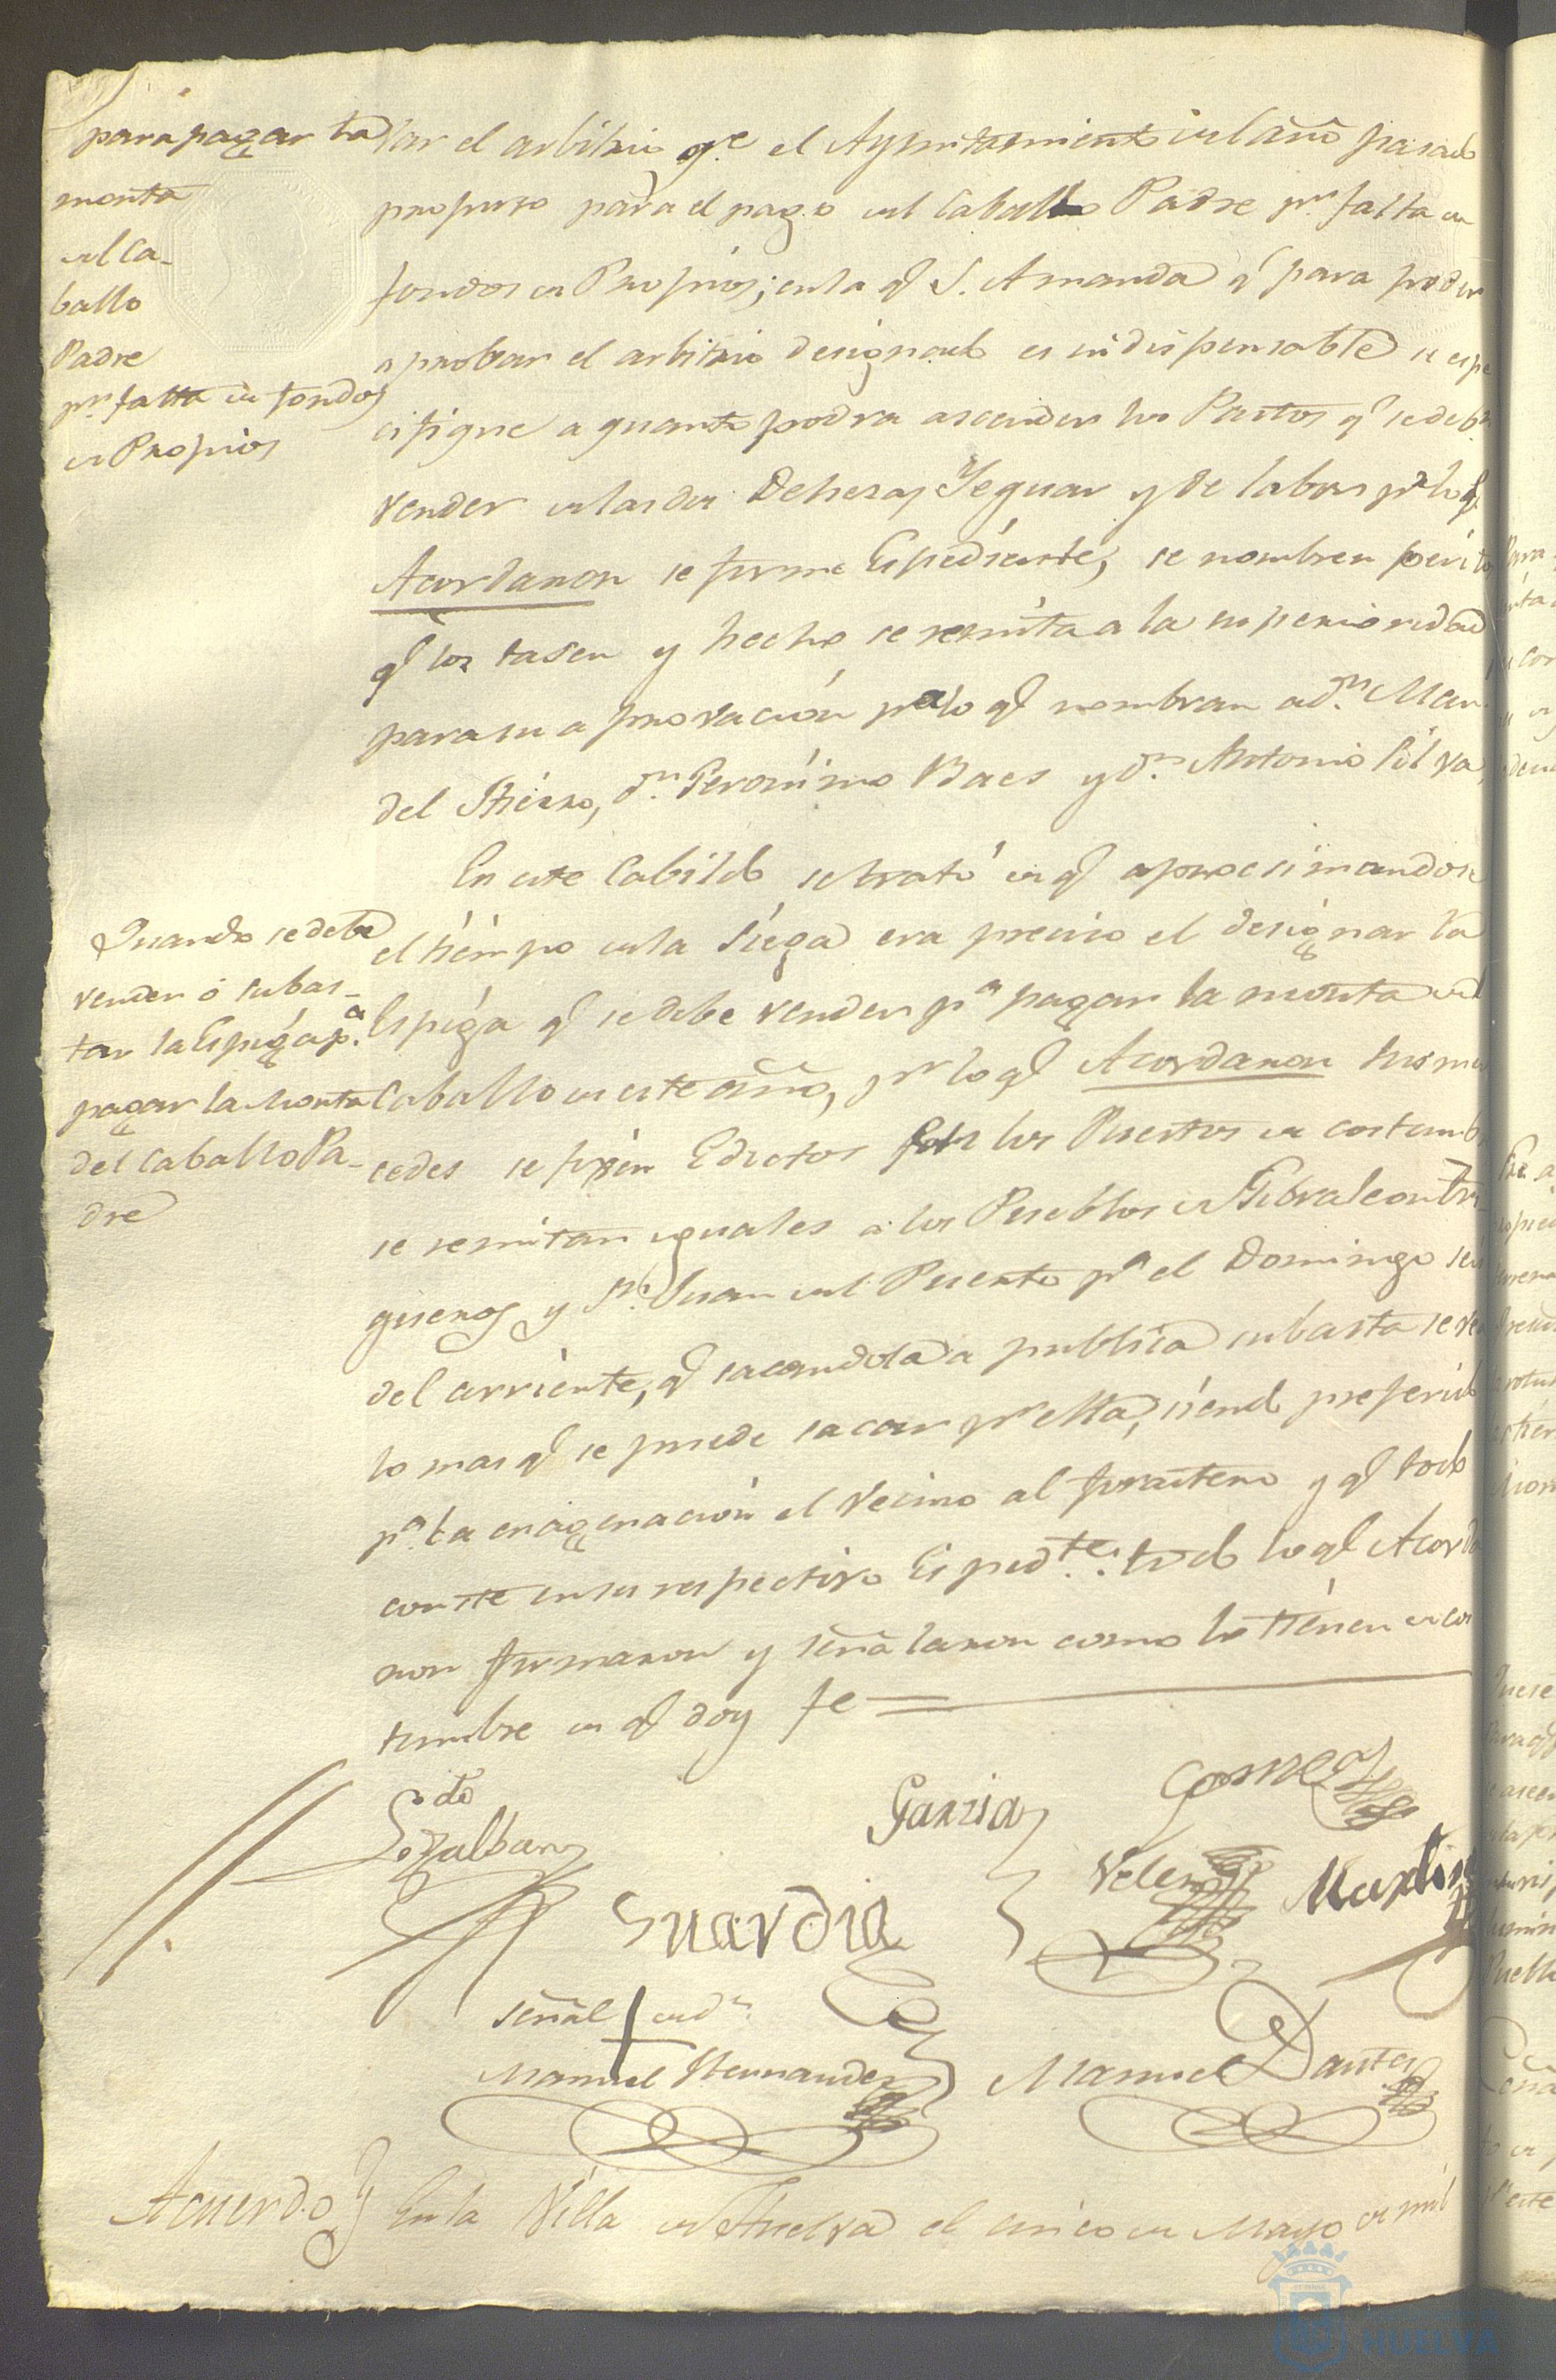 para pagar la
monta
del Ca-
ballo
Padre
pr. falta de fondos
de Propios
lar el arbitrio qe. el Ayuntamiento en el año pasado
propuso para el pago del Caballo Padre pr. falta de
fondos de Propios; en la q. S. A manda q. para poder
aprobar el arbitrio designado es indispensable se espe
cifique a quanto podra ascender los Pastos q. se deben
vender en las dos Dehesas, Yeguar y de labor pr. lo q.
Acordaron se forme Espediente, se nombren perito
q. los tasen y hecho se remita a la superioridad
para su aprovación pa. lo q. nombran a Dn. Man.
del Hierro, Dn. Geronimo Baes y Dn. Antonio Silva,
En este Cabildo se trató de q. aprocsimandose
el tiempo de la Siega era preciso el designar la
Espiga q. se debe vender pa. pagar la monta del
Caballo en este año, pr. lo q. Acordaron sus mer
cedes se fixen Edictos en los Puestos de costumb
se remitan yguales a los Pueblos de Gibraleon Tri-
gueros y Sn. Juan del Puerto pa. el Domingo seis
del corriente, q. sacandola a publica subasta se ve
lo mas q. se puede sacar pr. ella, siendo preferido
pa. la enagenación el Vecino al forastero y q. todo
conste en su respectivo Espedte.: todo lo q. Acorda
ron firmaron y señalaron como lo tienen de cos
tumbre de q. doy fe
Quando se debe
vender ó subas-
tar la Espiga pa.
pagar la Monta
del Caballo Pa-
dre
Garzia
Gomez
Guardia
Velez
Martin
señal de Dn.
Manuel Hernandez
Manuel Dante
Acuerdo
En la Villa de Huelva el cinco de Mayo de mil
HUELVA